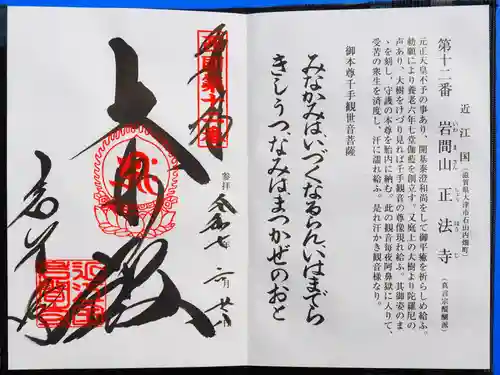 第十二番 近江国 岩間山 正法寺
いわ ま さん しょう ほう じ
(滋賀県大津市石山内畑町)
(真言宗醍醐派)
元正天皇不予の事あり、開基泰澄和尚をして御平癒を祈らしめ給ふ。
勅願により養老六年七堂伽藍を創立す。又庭上の大樹より陀羅尼の
声あり、大樹をけづり見れば千手観音の尊像現れ給ふ。其御姿のま
ゝを刻し、守護の本尊を胎内に納む。此の観音毎夜阿鼻獄に入りて、
受苦の衆生を済度し、汗に濡れ給ふ。是れ汗かき観音様なり。
御本尊千手観世音菩薩
みなかみはいづくなるらんいはまでら
きしうつなみはまつかぜのおと
西国第十二番
参拝 令和七
大悲殿
岩間山